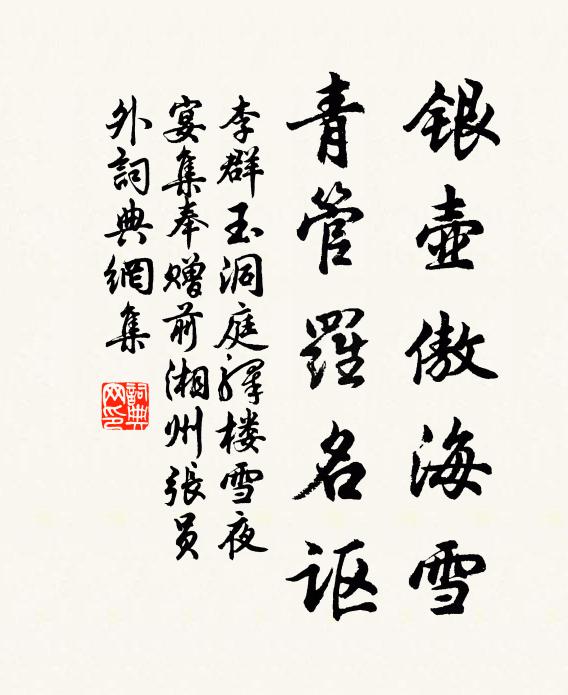 银壶傲海雪
青管羅名讴
李群玉洞庭驿楼雪夜
宴集奉赠前湘州張员
外詞典網集
詞典
网印